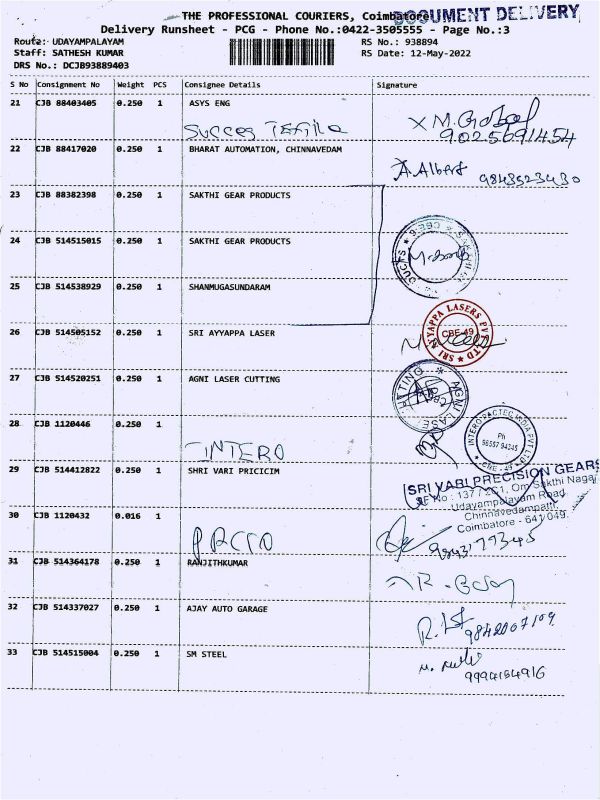 THE PROFESSIONAL COURIERS, Coimbatore
DOCUMENT DELIVERY
Delivery Runsheet - PCG - Phone No.:0422-3505555 - Page No.:3
Route: UDAYAMPALAYAM RS No.: 938894
Staff: SATHESH KUMAR RS Date: 12-May-2022
DRS No.: DCJB93889403
S No Consignment No Weight PCS Consignee Details Signature
21 CJB 88403405 0.250 1 ASYS ENG
9025691454
22 CJB 88417020 0.250 1 BHARAT AUTOMATION, CHINNAVEDAM
A. Albert 9843523430
23 CJB 88382398 0.250 1 SAKTHI GEAR PRODUCTS
24 CJB 514515015 0.250 1 SAKTHI GEAR PRODUCTS
25 CJB 514538929 0.250 1 SHANMUGASUNDARAM
26 CJB 514505152 0.250 1 SRI AYYAPPA LASER
SRI AYYAPPA LASERS PVT LTD
CBE-49
27 CJB 514520251 0.250 1 AGNI LASER CUTTING
28 CJB 1120446 0.250 1
INTERO
INTERO PACTEC INDIA PVT LTD
Ph
96557 94345
CBE - 49
29 CJB 514412822 0.250 1 SHRI VARI PRICICIM
SRI VARI PRECISION GEARS
Om Sakthi Nagar
Udayampalayam Road
Chinnavedampatti,
Coimbatore - 641 049.
30 CJB 1120432 0.016 1
31 CJB 514364178 0.250 1 RANJITHKUMAR
32 CJB 514337027 0.250 1 AJAY AUTO GARAGE
9842007109
33 CJB 514515004 0.250 1 SM STEEL
9994164916